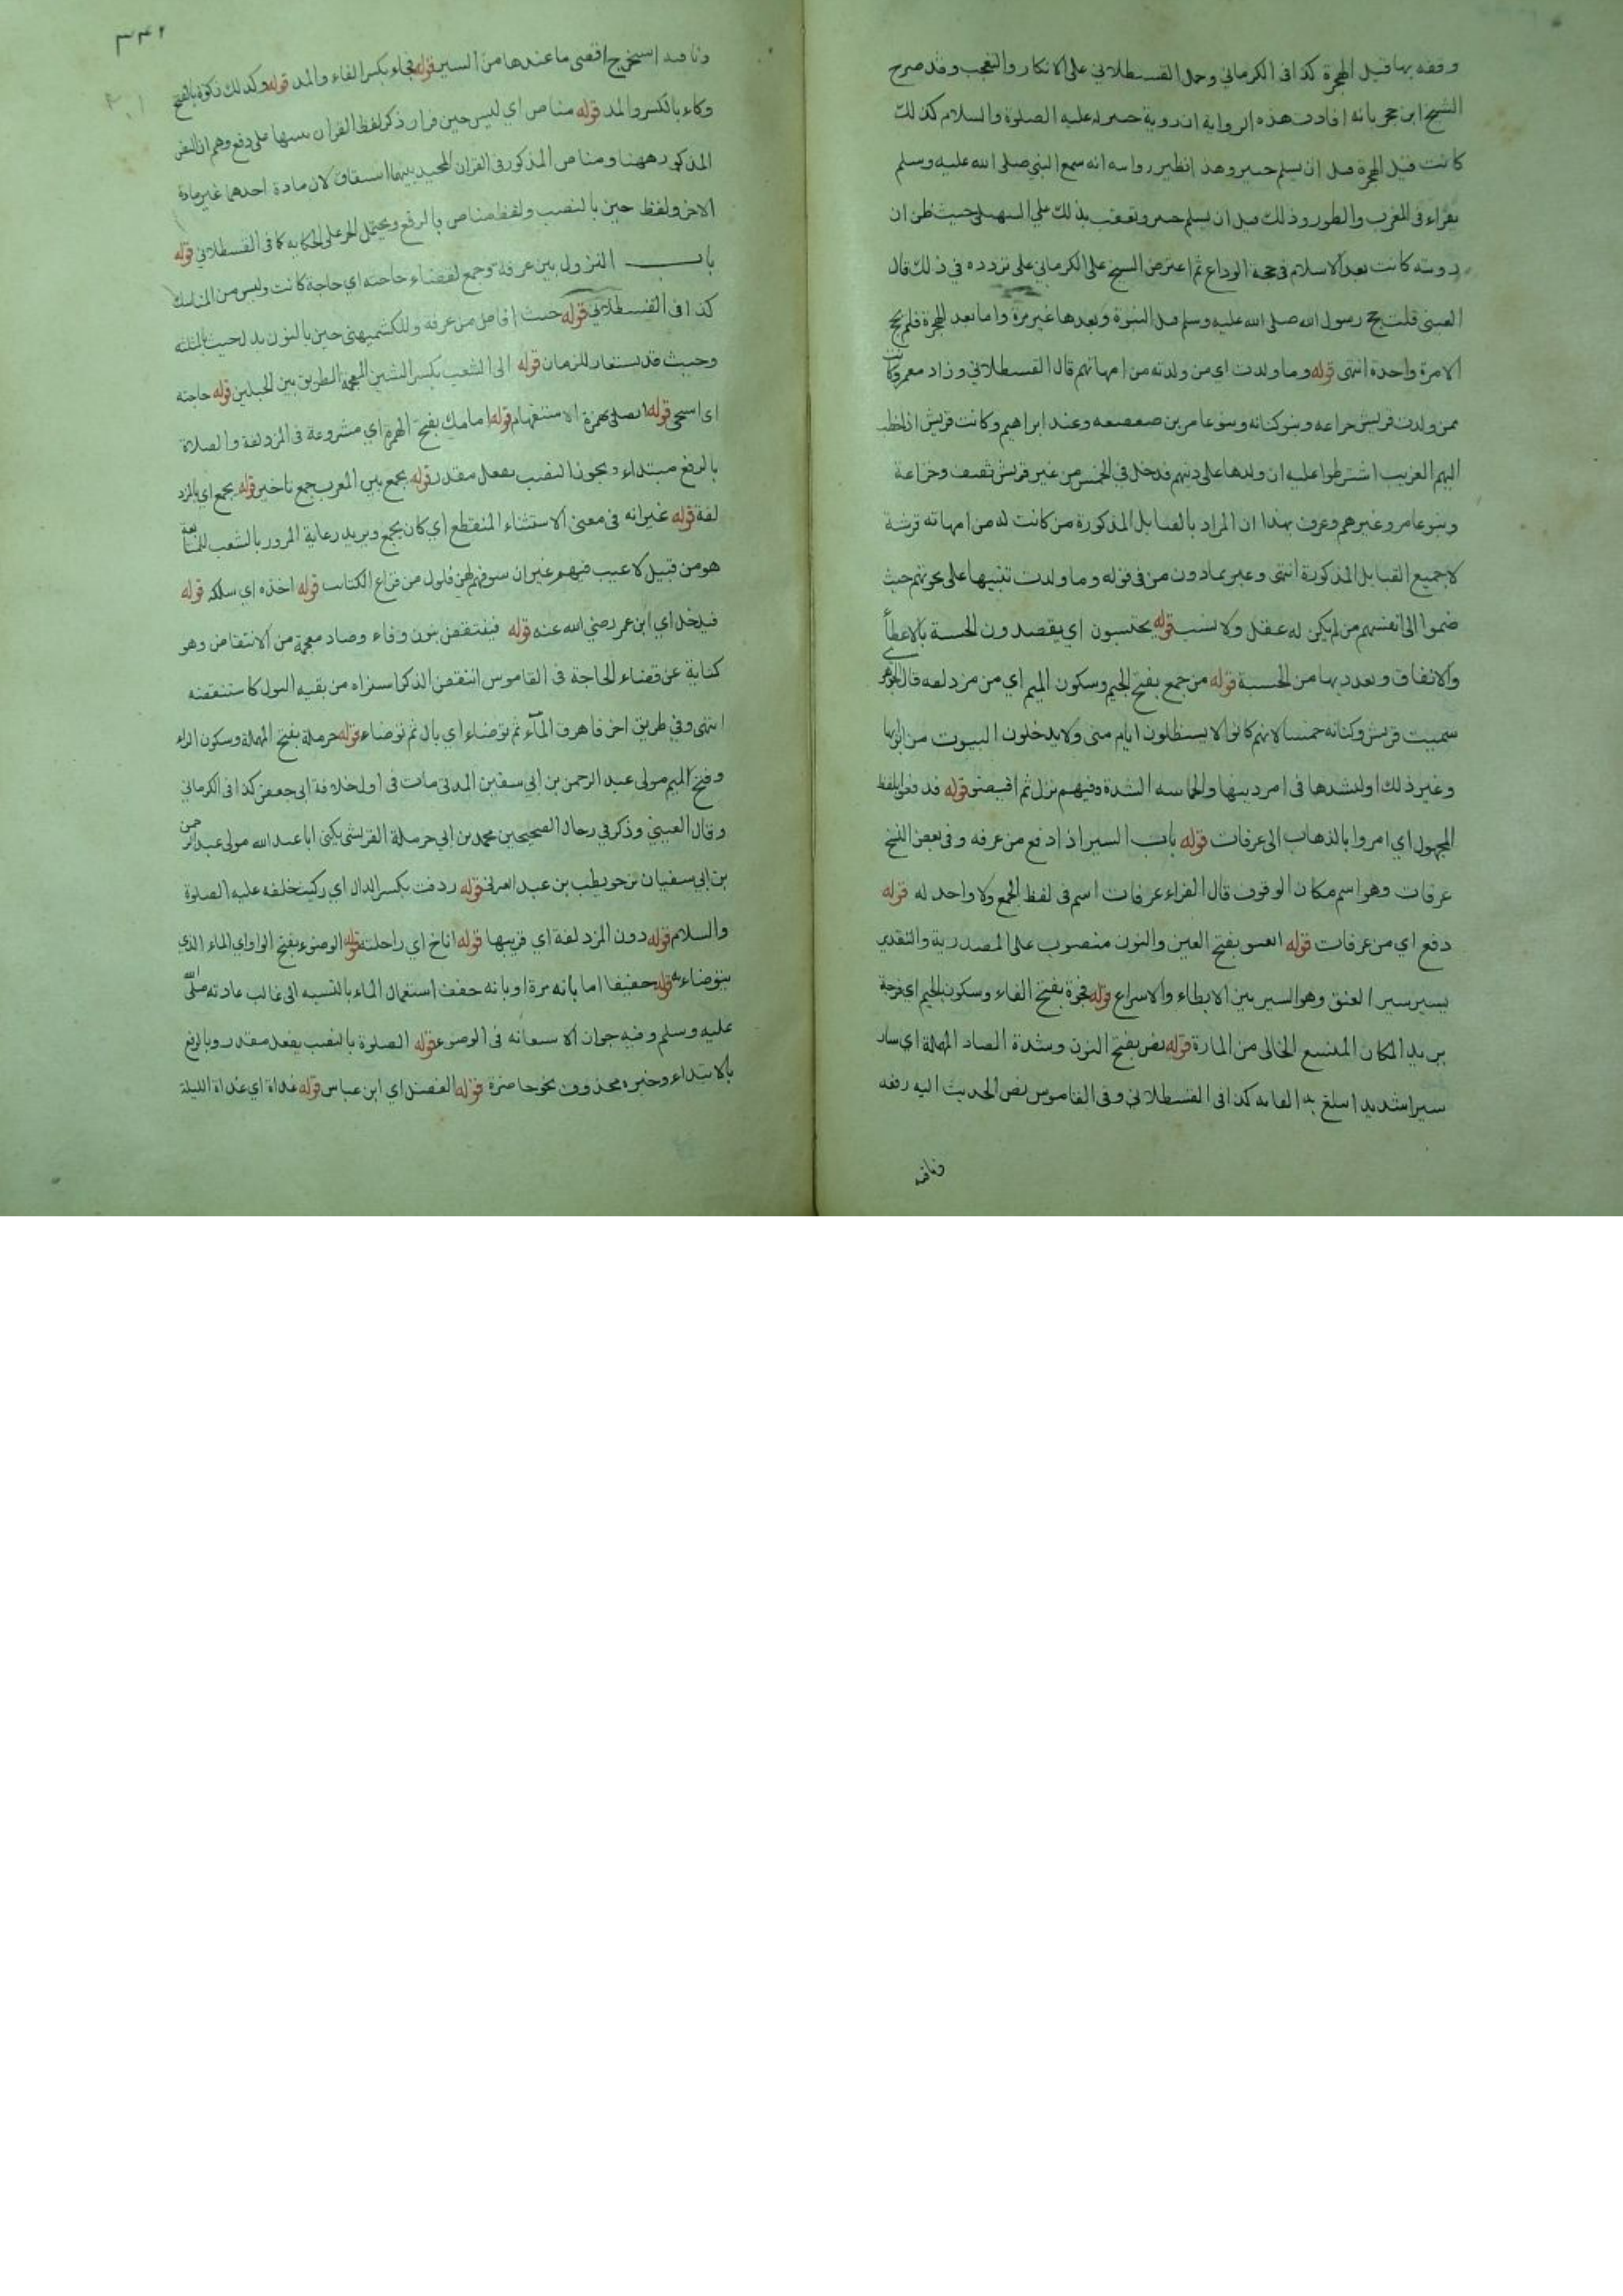 وقفه بها قبل الهجرة كذا فى الكرماني وحمل القسطلاني على الانكار والتعجب وقد صرح
الشيخ ابن حجر بانه افادت هذه الرواية ان روية جبير له عليه الصلوة والسلام كذلك
كانت قبل الهجرة قبل ان يسلم جبير وهذا نظير روايته انه سمع النبي صلى الله عليه وسلم
يقراء فى المغرب والطور وذلك قبل ان يسلم جبير وتعقب بذلك على السهيلي حيث ظن ان
رويته كانت بعد الاسلام فى حجة الوداع ثم اعترض الشيخ على الكرماني على تردده في ذلك قال
العينى قلت حج رسول الله صلى الله عليه وسلم قبل النبوة وبعدها غير مرة واما بعد الهجرة فلم يحج
الا مرة واحدة انتهى قوله وما ولدت اى من ولدته من امهاتهم قال القسطلاني وزاد معمر وكانت
ممن ولدت قريش خزاعه وبنو كنانه وبنو عامر بن صعصعه وعند ابراهيم وكانت قريش اذا خطب
اليهم الغريب اشترطوا عليه ان ولدها على دينهم فدخل في الحمس من غير قريش ثقيف وخزاعة
وبنو عامر وغيرهم وعرف بهذا ان المراد بالقبايل المذكورة من كانت له من امهاته قرشية
لا جميع القبايل المذكورة انتهى وعبر بما دون من فى قوله وما ولدت تنبيها على حيث
ضموا الى انفسهم من لم يكن له عقل ولا نسب قوله يحتسبون اي يقصدون الحسبة بالاعطاء
والانفاق ونعدد بها من الحسبة قوله من جمع بفتح الجيم وسكون الميم اي من مزدلفه قال
سميت قريش وكنانه حمسا لانهم كانوا لا يستظلون ايام منى ولا يدخلون البيوت من ابوابها
وغير ذلك او لتشددها فى امر دينها والحماسه الشدة وفيهم نزل ثم افيضوا قوله فدفعوا بلفظ
المجهول اي امروا بالذهاب الى عرفات قوله باب السير اذا دفع من عرفه وفى بعض النسخ
عرفات وهو اسم مكان الوقوف قال الفراء عرفات اسم فى لفظ الجمع ولا واحد له قوله
دفع اي من عرفات قوله العنق بفتح العين والنون منصوب على المصدرية والتقدير
يسير سير العنق وهو السير بين الابطاء والاسراع قوله فجوة بفتح الفاء وسكون الجيم اي فرجة
يريد المكان المتسع الخالى من المارة قوله نص بفتح النون وشدة الصاد المهملة اي سار
سيرا شديدا ابلغ به الغايه كذا فى القسطلاني وفى القاموس نص الحديث اليه رفعه
وناقته
وناقته استخرج اقصى ما عندها من السير قوله فجاء بكسر الفاء والمد قوله وكذلك ركوة بالفتح
وركاء بالكسر والمد قوله مناص اي ليس حين فرار ذكر لفظ القران تنبيها على دفع وهم ان النص
المذكور ههنا ومناص المذكور فى القران المجيد بينهما اشتقاق لان مادة احدهما غير مادة
الاخر ولفظ حين بالنصب ولفظ مناص بالرفع ويحتمل الجر على الحكايه كما فى القسطلاني قوله
باب النزول بين عرفة وجمع لقضاء حاجته اي حاجة كانت وليس من المناسك
كذا فى القسطلاني قوله حيث افاض من عرفه وللكشميهنى حين بالنون بدل حيث بالمثلثه
وحيث قد يستعار للزمان قوله الى الشعب بكسر الشين المعجمة الطريق بين الجبلين قوله حاجته
اى استنجى قوله اتصلى بهمزة الاستفهام قوله امامك بفتح الهمزة اي مشروعة فى المزدلفة والصلاة
بالرفع مبتداء ويجوز النصب بفعل مقدر قوله يجمع بين المغرب جمع تاخير قوله بجمع اي بالمزد
لفة قوله غير انه فى معنى الاستثناء المنقطع اي كان يجمع ويريد رعاية المرور بالشعب للمتابعة
هو من قبيل لا عيب فيهم غير ان سيوفهم بهن فلول من قراع الكتايب قوله اخذه اي سلكه قوله
فيدخل اي ابن عمر رضي الله عنه قوله فينتفض بنون وفاء وضاد معجمة من الانتفاض وهو
كناية عن قضاء الحاجة فى القاموس انتفض الذكر استبراه من بقيه البول كاستنفضه
انتهى وفي طريق اخر فاهرق المآء ثم توضاء اي بال ثم توضاء قوله حرملة بفتح المهملة وسكون الراء
وفتح الميم مولى عبد الرحمن بن ابي سفين المدنى مات فى اول خلافة ابى جعفر كذا فى الكرماني
وقال العيني وذكر في رجال الصحيحين محمد بن ابي حرملة القرشى يكنى ابا عبد الله مولى عبد الرحمن
بن ابي سفيان بن حويطب بن عبد العزى قوله ردفت بكسر الدال اي ركبت خلفه عليه الصلوة
والسلام قوله دون المزدلفة اي قريبها قوله اناخ اي راحلته قوله الوضوء بفتح الواو اي الماء الذي
يتوضاء به قوله خفيفا اما بانه مرة او بانه خفف استعمال الماء بالنسبه الى غالب عادته صلى الله
عليه وسلم وفيه جواز الاستعانه فى الوضوء قوله الصلوة بالنصب بفعل مقدر وبالرفع
بالابتداء وخبره محذوف نحو حاضرة قوله الفضل اي ابن عباس قوله غداة اي غداة الليلة